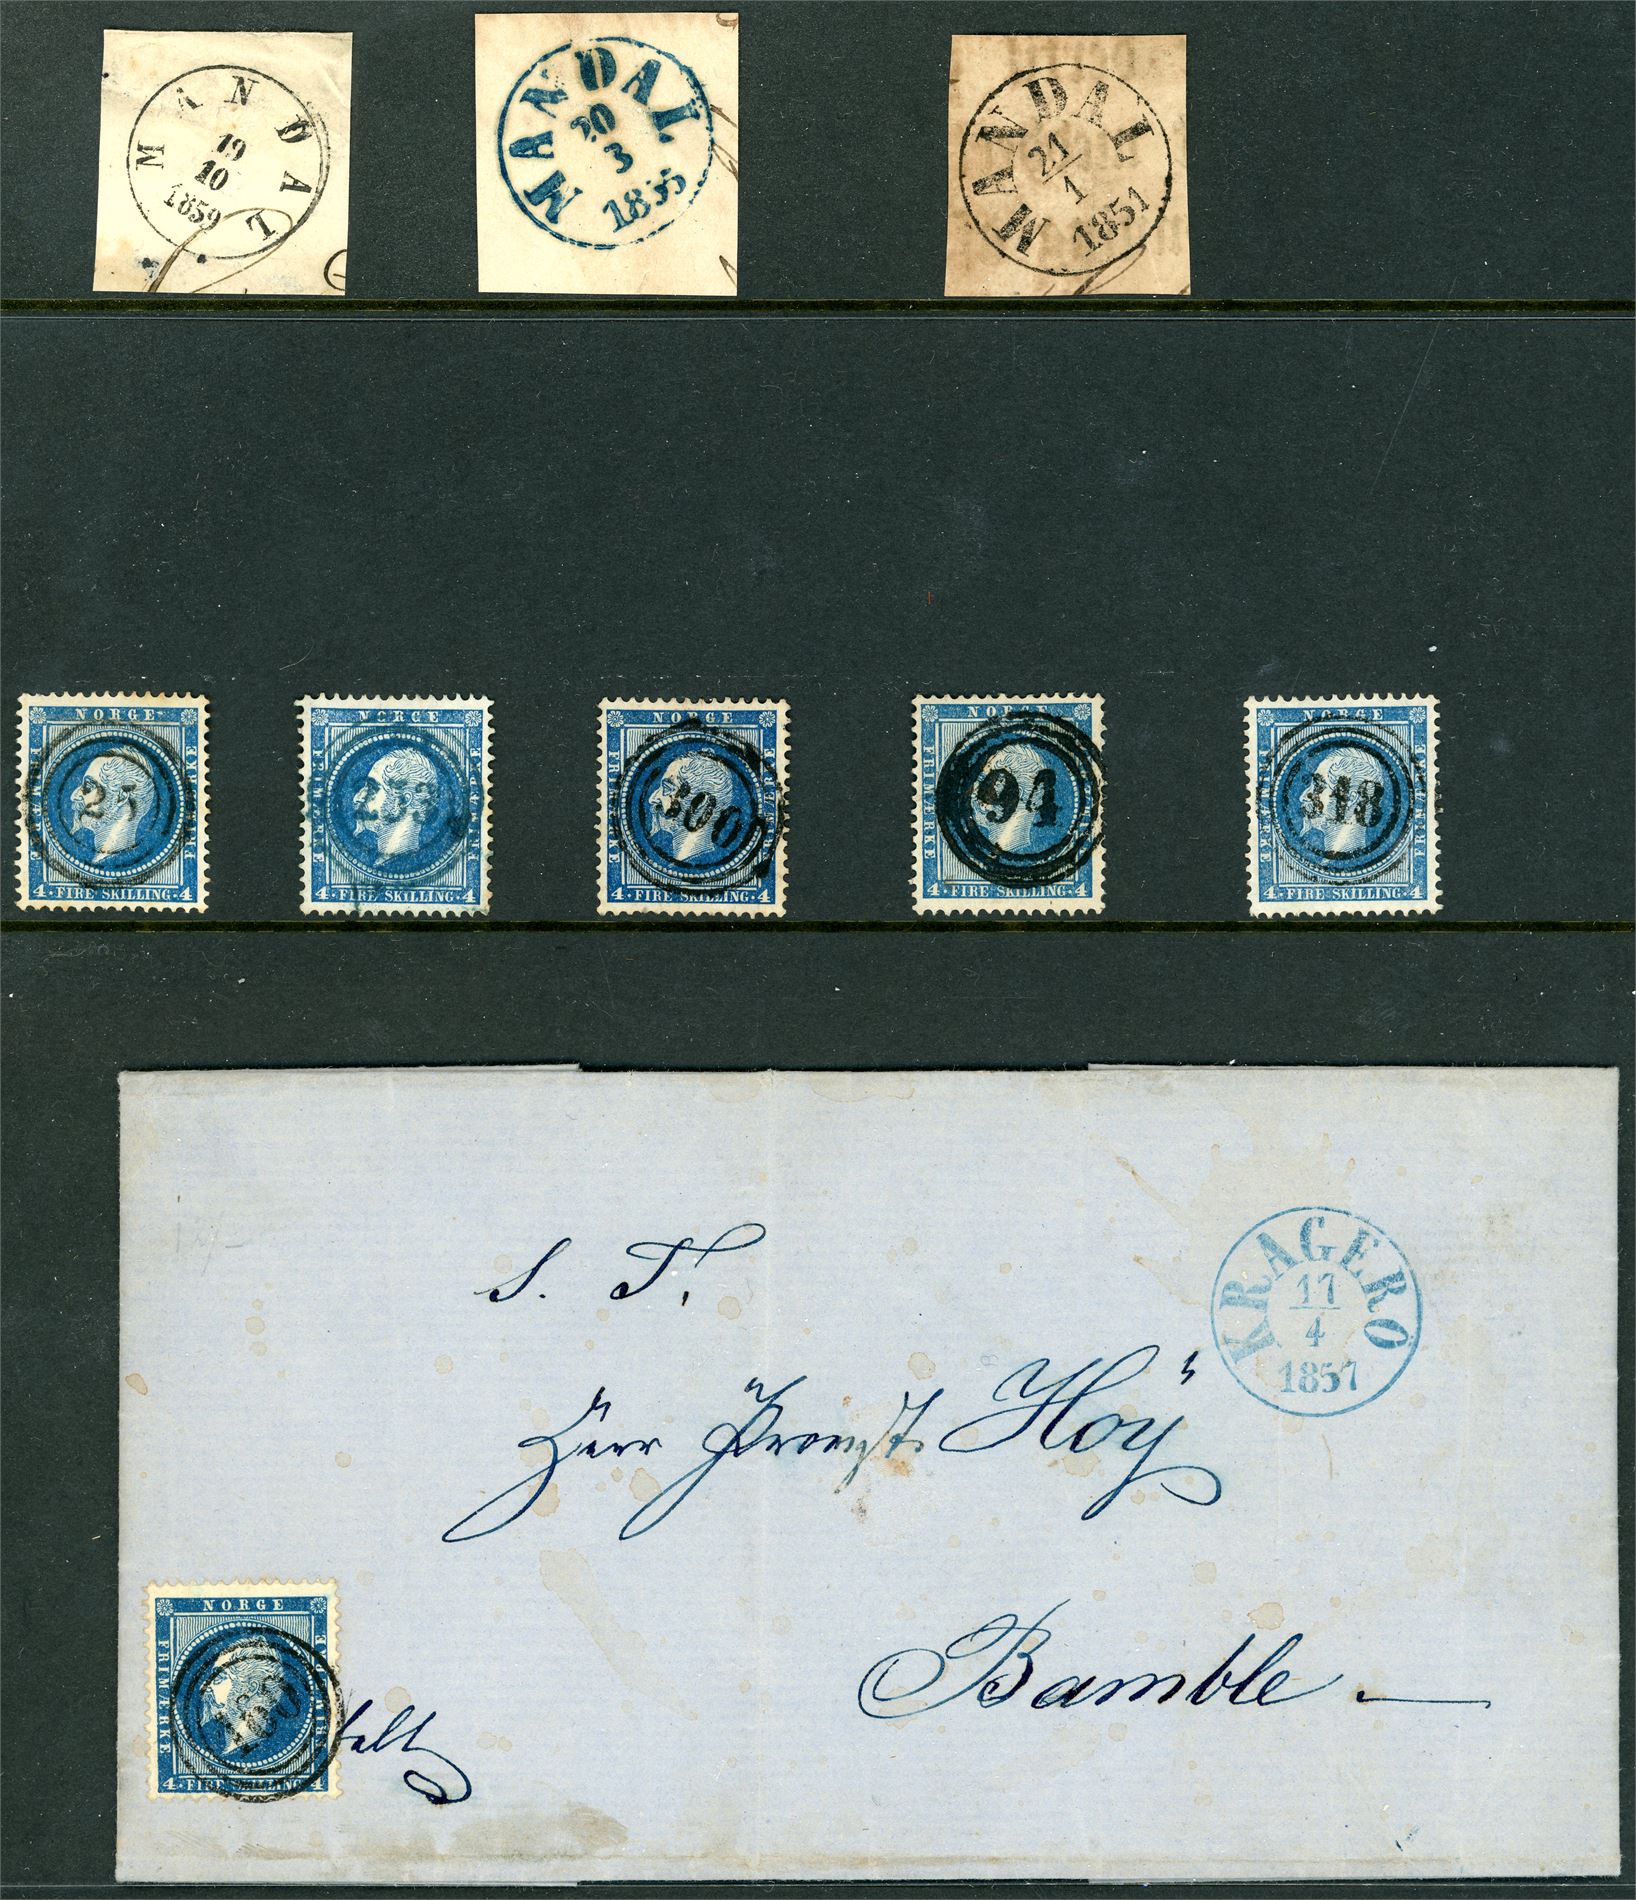 MANDAL
19
10
1859
MANDAL
20
3
1855
MANDAL
21
1
1851
NORGE
FRIMÆRKE
FRIMÆRKE
4 · FIRE SKILLING · 4
25
NORGE
FRIMÆRKE
FRIMÆRKE
4 · FIRE SKILLING · 4
NORGE
FRIMÆRKE
FRIMÆRKE
4 · FIRE SKILLING · 4
300
NORGE
FRIMÆRKE
4 · FIRE SKILLING · 4
94
NORGE
FRIMÆRKE
FRIMÆRKE
4 · FIRE SKILLING · 4
318
S. T.
KRAGERÖ
17
4
1857
Herr Provst Höy
Bamble
NORGE
FRIMÆRKE
FRIMÆRKE
4 · FIRE SKILLING · 4
180